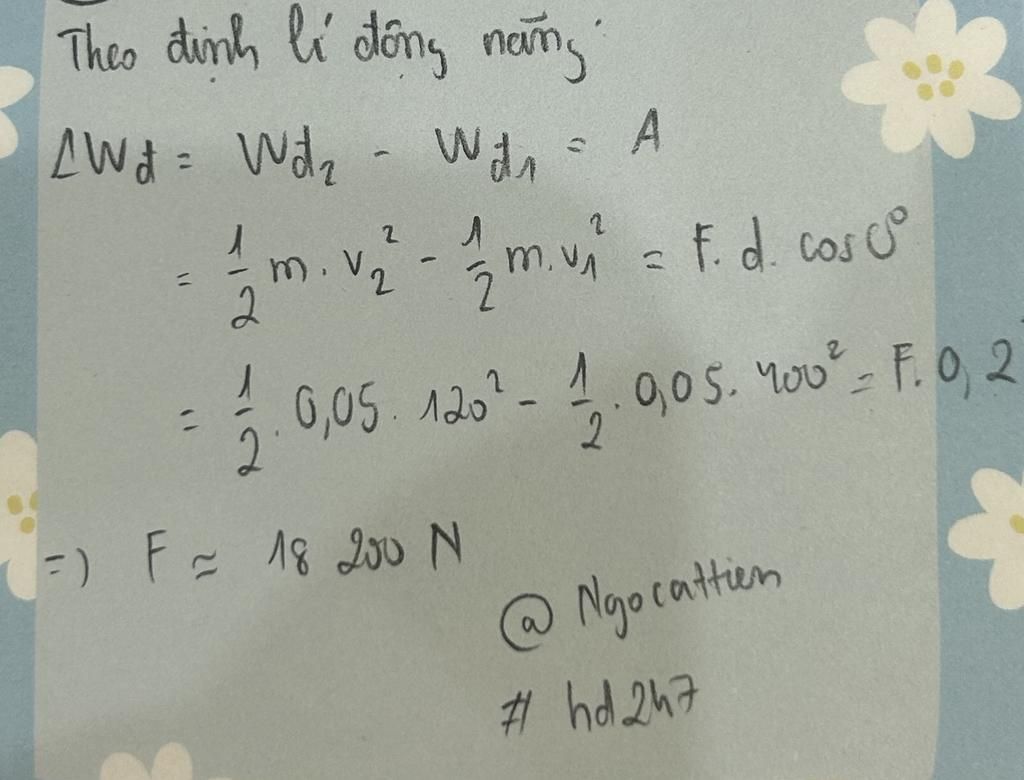 Theo định lí động năng:
ΔWđ = Wđ₂ - Wđ₁ = A
= 1/2 m . v₂² - 1/2 m . v₁² = F. d. cos 0°
= 1/2 . 0,05 . 120² - 1/2 . 0,05 . 400² = F. 0,2
=) F ≈ 18 200 N
@ Ngocattien
# hd247